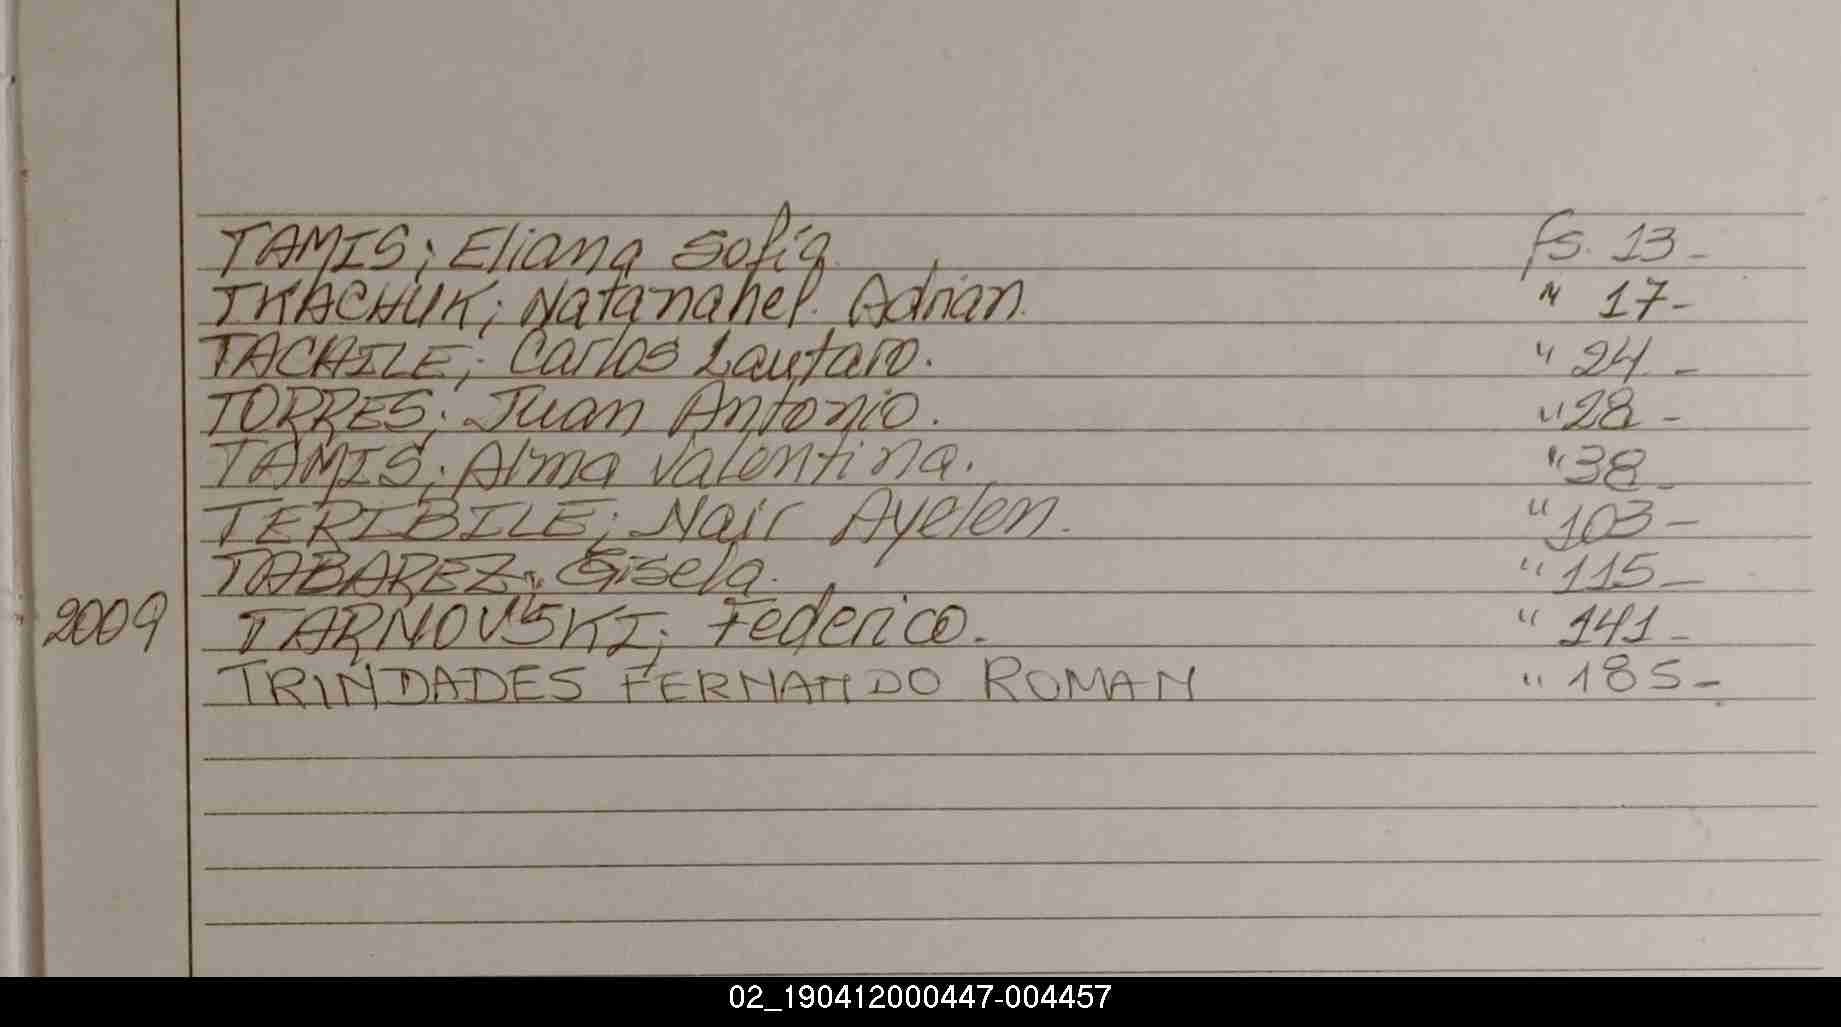 TAMIS; Eliana Sofía. fs. 13-
TKACHUK; Natanahel. Adrian. " 17-
TACHILE; Carlos Lautaro. " 24-
TORRES; Juan Antonio. " 28-
TAMIS; Alma Valentina. " 38-
TERIBILE; Nair Ayelen. " 103-
TABAREZ; Gisela. " 115-
2009 TARNOVSKI; Federico. " 141-
TRINDADES FERNANDO ROMAN " 185-
02_190412000447-004457